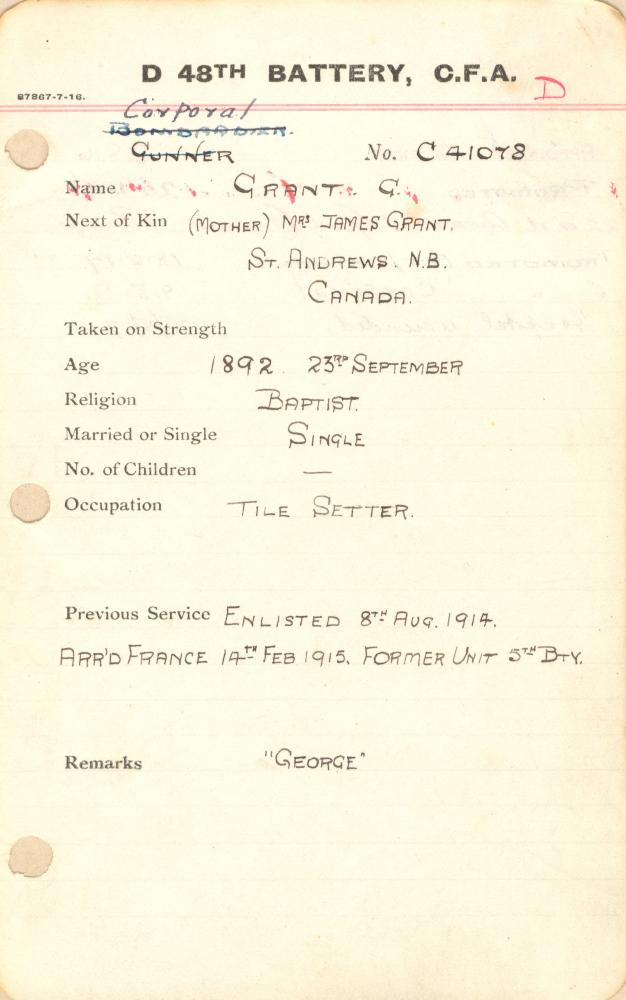 D 48TH BATTERY, C.F.A.
D
87867-7-16.
Corporal
BOMBARDIER.
GUNNER No. C 41078
Name GRANT. G.
Next of Kin (MOTHER) MRS JAMES GRANT.
ST. ANDREWS. N.B.
CANADA.
Taken on Strength
Age 1892. 23RD SEPTEMBER
Religion BAPTIST.
Married or Single SINGLE
No. of Children —
Occupation TILE SETTER.
Previous Service ENLISTED 8TH AUG. 1914.
ARR'D FRANCE 14TH FEB 1915. FORMER UNIT 5TH BTY.
Remarks "GEORGE"